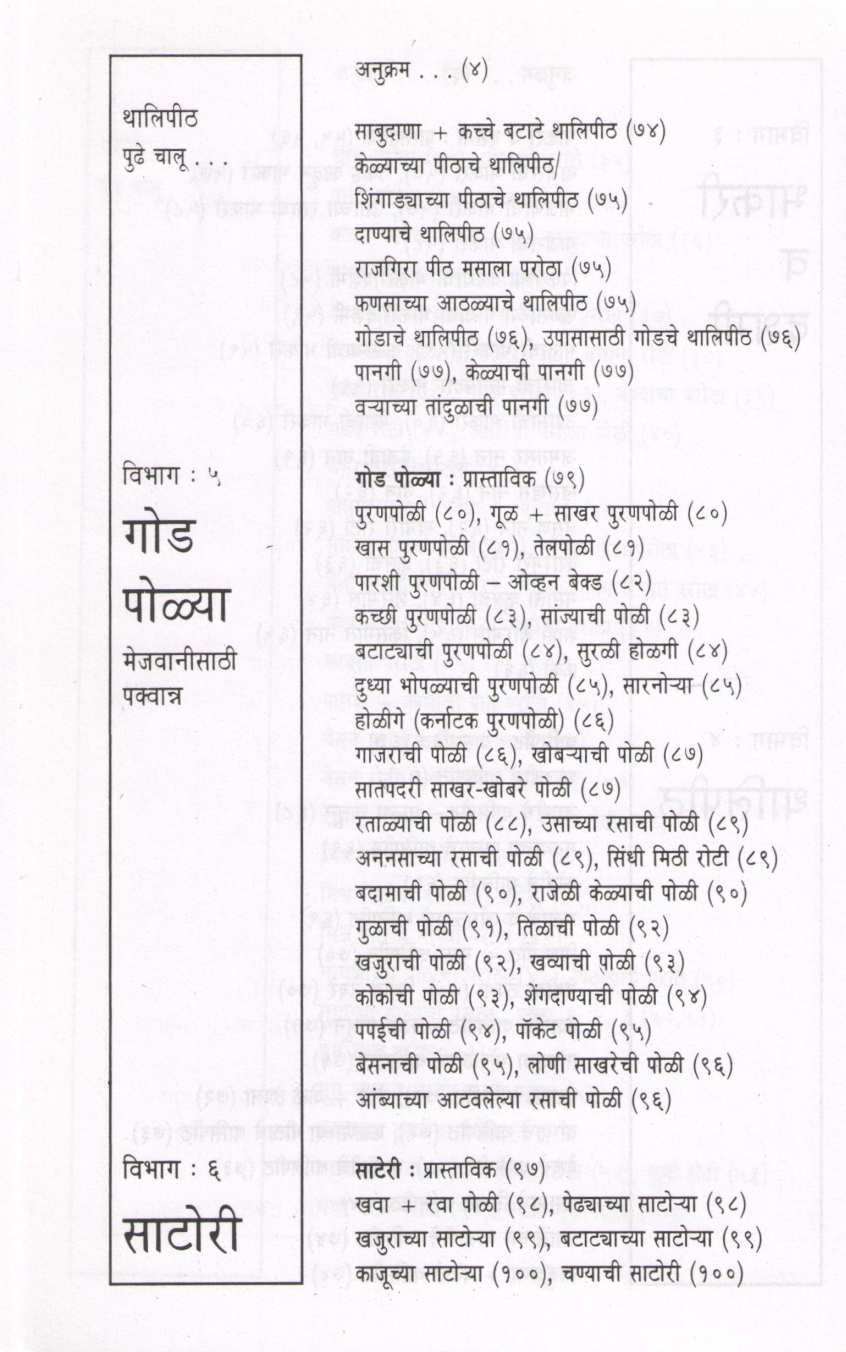 अनुक्रम . . . (४)
थालिपीठ
पुढे चालू . . .
साबुदाणा + कच्चे बटाटे थालिपीठ (७४)
केळ्याच्या पीठाचे थालिपीठ/
शिंगाड्याच्या पीठाचे थालिपीठ (७५)
दाण्याचे थालिपीठ (७५)
राजगिरा पीठ मसाला परोठा (७५)
फणसाच्या आठळ्याचे थालिपीठ (७५)
गोडाचे थालिपीठ (७६), उपासासाठी गोडचे थालिपीठ (७६)
पानगी (७७), केळ्याची पानगी (७७)
वऱ्याच्या तांदुळाची पानगी (७७)
विभाग : ५
गोड
पोळ्या
मेजवानीसाठी
पक्वान्न
गोड पोळ्या : प्रास्ताविक (७९)
पुरणपोळी (८०), गूळ + साखर पुरणपोळी (८०)
खास पुरणपोळी (८१), तेलपोळी (८१)
पारशी पुरणपोळी – ओव्हन बेक्ड (८२)
कच्छी पुरणपोळी (८३), सांज्याची पोळी (८३)
बटाट्याची पुरणपोळी (८४), सुरळी होळगी (८४)
दुध्या भोपळ्याची पुरणपोळी (८५), सारनोऱ्या (८५)
होळीगे (कर्नाटक पुरणपोळी) (८६)
गाजराची पोळी (८६), खोबऱ्याची पोळी (८७)
सातपदरी साखर-खोबरे पोळी (८७)
रताळ्याची पोळी (८८), उसाच्या रसाची पोळी (८९)
अननसाच्या रसाची पोळी (८९), सिंधी मिठी रोटी (८९)
बदामाची पोळी (९०), राजेळी केळ्याची पोळी (९०)
गुळाची पोळी (९१), तिळाची पोळी (९२)
खजुराची पोळी (९२), खव्याची पोळी (९३)
कोकोची पोळी (९३), शेंगदाण्याची पोळी (९४)
पपईची पोळी (९४), पॉकेट पोळी (९५)
बेसनाची पोळी (९५), लोणी साखरेची पोळी (९६)
आंब्याच्या आटवलेल्या रसाची पोळी (९६)
विभाग : ६
साटोरी
साटेरी : प्रास्ताविक (९७)
खवा + रवा पोळी (९८), पेढ्याच्या साटोऱ्या (९८)
खजुराच्या साटोऱ्या (९९), बटाट्याच्या साटोऱ्या (९९)
काजूच्या साटोऱ्या (१००), चण्याची साटोरी (१००)